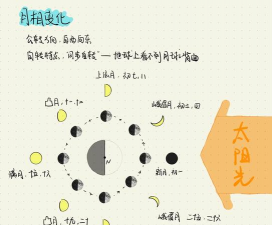 月相变化
公转方向:自西向东
自转特点:同步自转——地球上看不到月球背面
上弦月,初七、八
凸月,十一、十二
峨眉月,初三、四
满月,十五、十六
N
新月,初一
太阳光
凸月,十九、二十
峨眉月 二十五、二十六